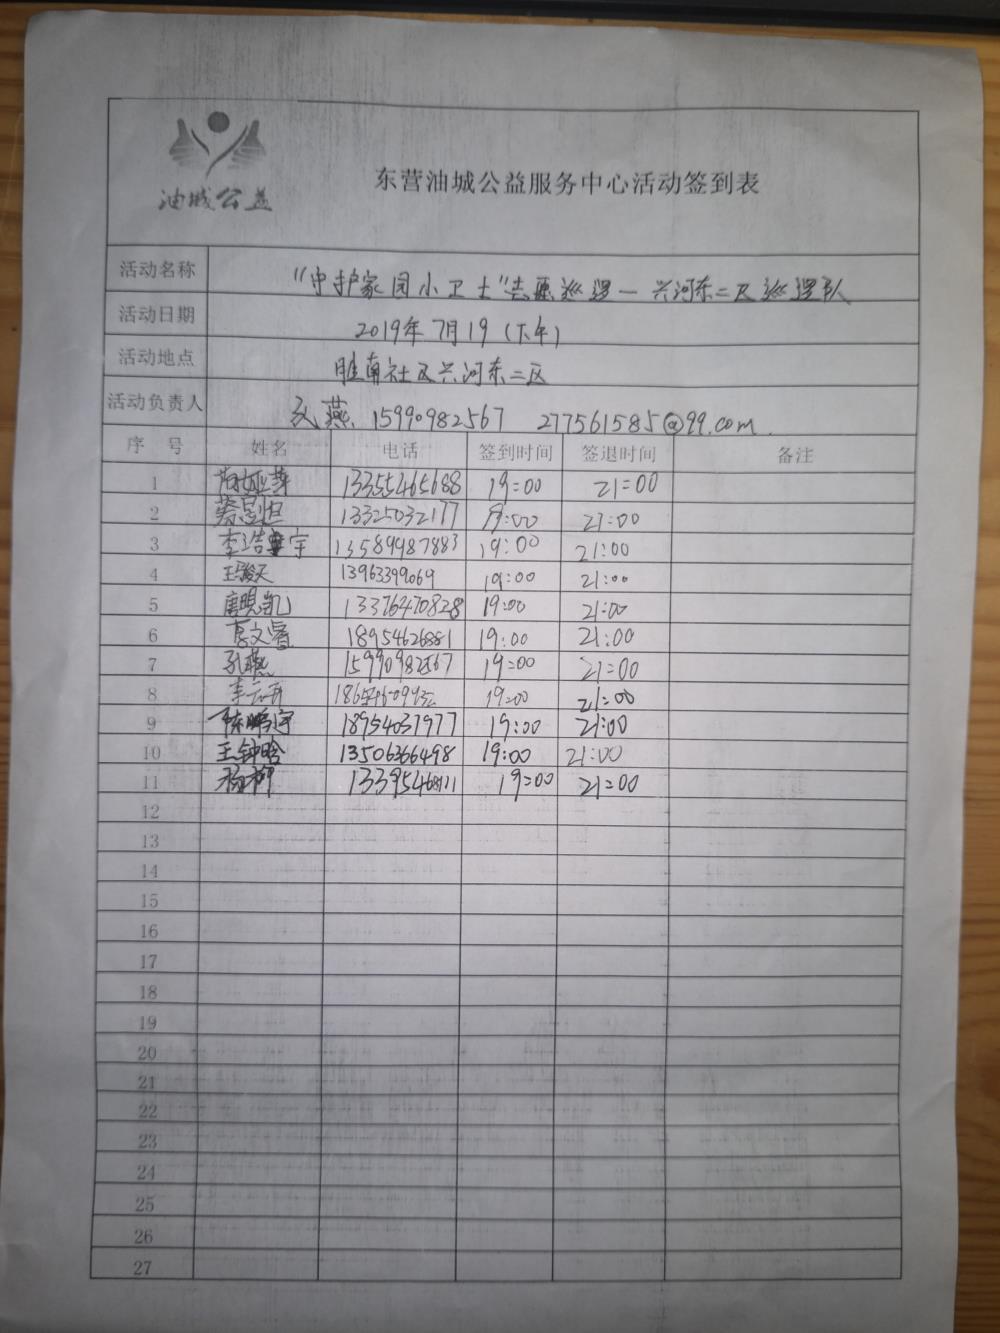 油城公益
东营油城公益服务中心活动签到表
活动名称 "守护家园小卫士"志愿巡逻一兴河东二区巡逻队
活动日期 2019年7月19(下午)
活动地点 胜南社区兴河东二区
活动负责人 孔燕 15990982567 277561585@qq.com
序号 姓名 电话 签到时间 签退时间 备注
1 13355465688 19:00 21:00
2 13325032177 19:00 21:00
3 李浩宇 13589987883 19:00 21:00
4 王骏天 13963399069 19:00 21:00
5 唐晛凯 13376470828 19:00 21:00
6 李文睿 18954626881 19:00 21:00
7 孔燕 15990982567 19:00 21:00
8 19:00 21:00
9 陈鹏宇 18954037977 19:00 21:00
10 王钟晗 13506366498 19:00 21:00
11 杨柳 13395468111 19:00 21:00
12
13
14
15
16
17
18
19
20
21
22
23
24
25
26
27